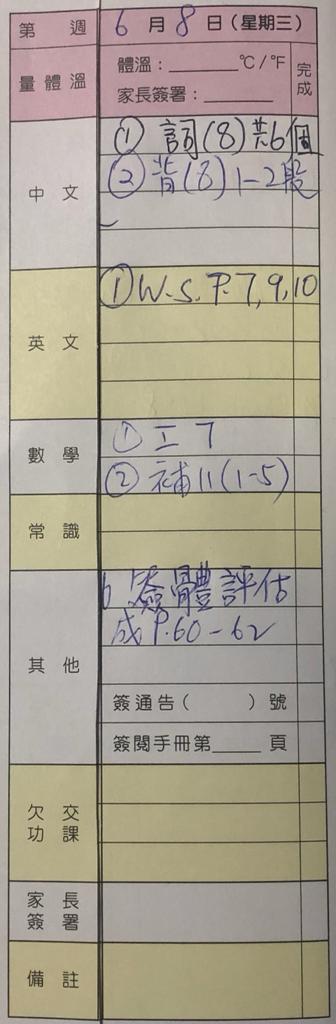 第 週 6 月 8 日 (星期三)
量體溫 體溫：______ °C/°F 完成
家長簽署：______
中文 ① 詞(8) 共6個
② 背(8) 1-2段
英文 ① W.S. P.7,9,10
數學 ① 工 7
② 補11(1-5)
常識
其他 簽體評估
成P.60-62
簽通告( )號
簽閱手冊第____頁
欠交功課
家長簽署
備註